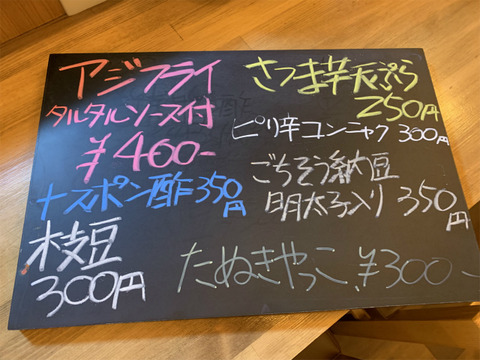 アジフライ
タルタルソース付
¥460-
ナスポン酢350円
枝豆
300円
さつま芋天ぷら
250円
ピリ辛コンニャク 300円
ごちそう納豆
明太子入り 350円
たぬきやっこ ¥300-